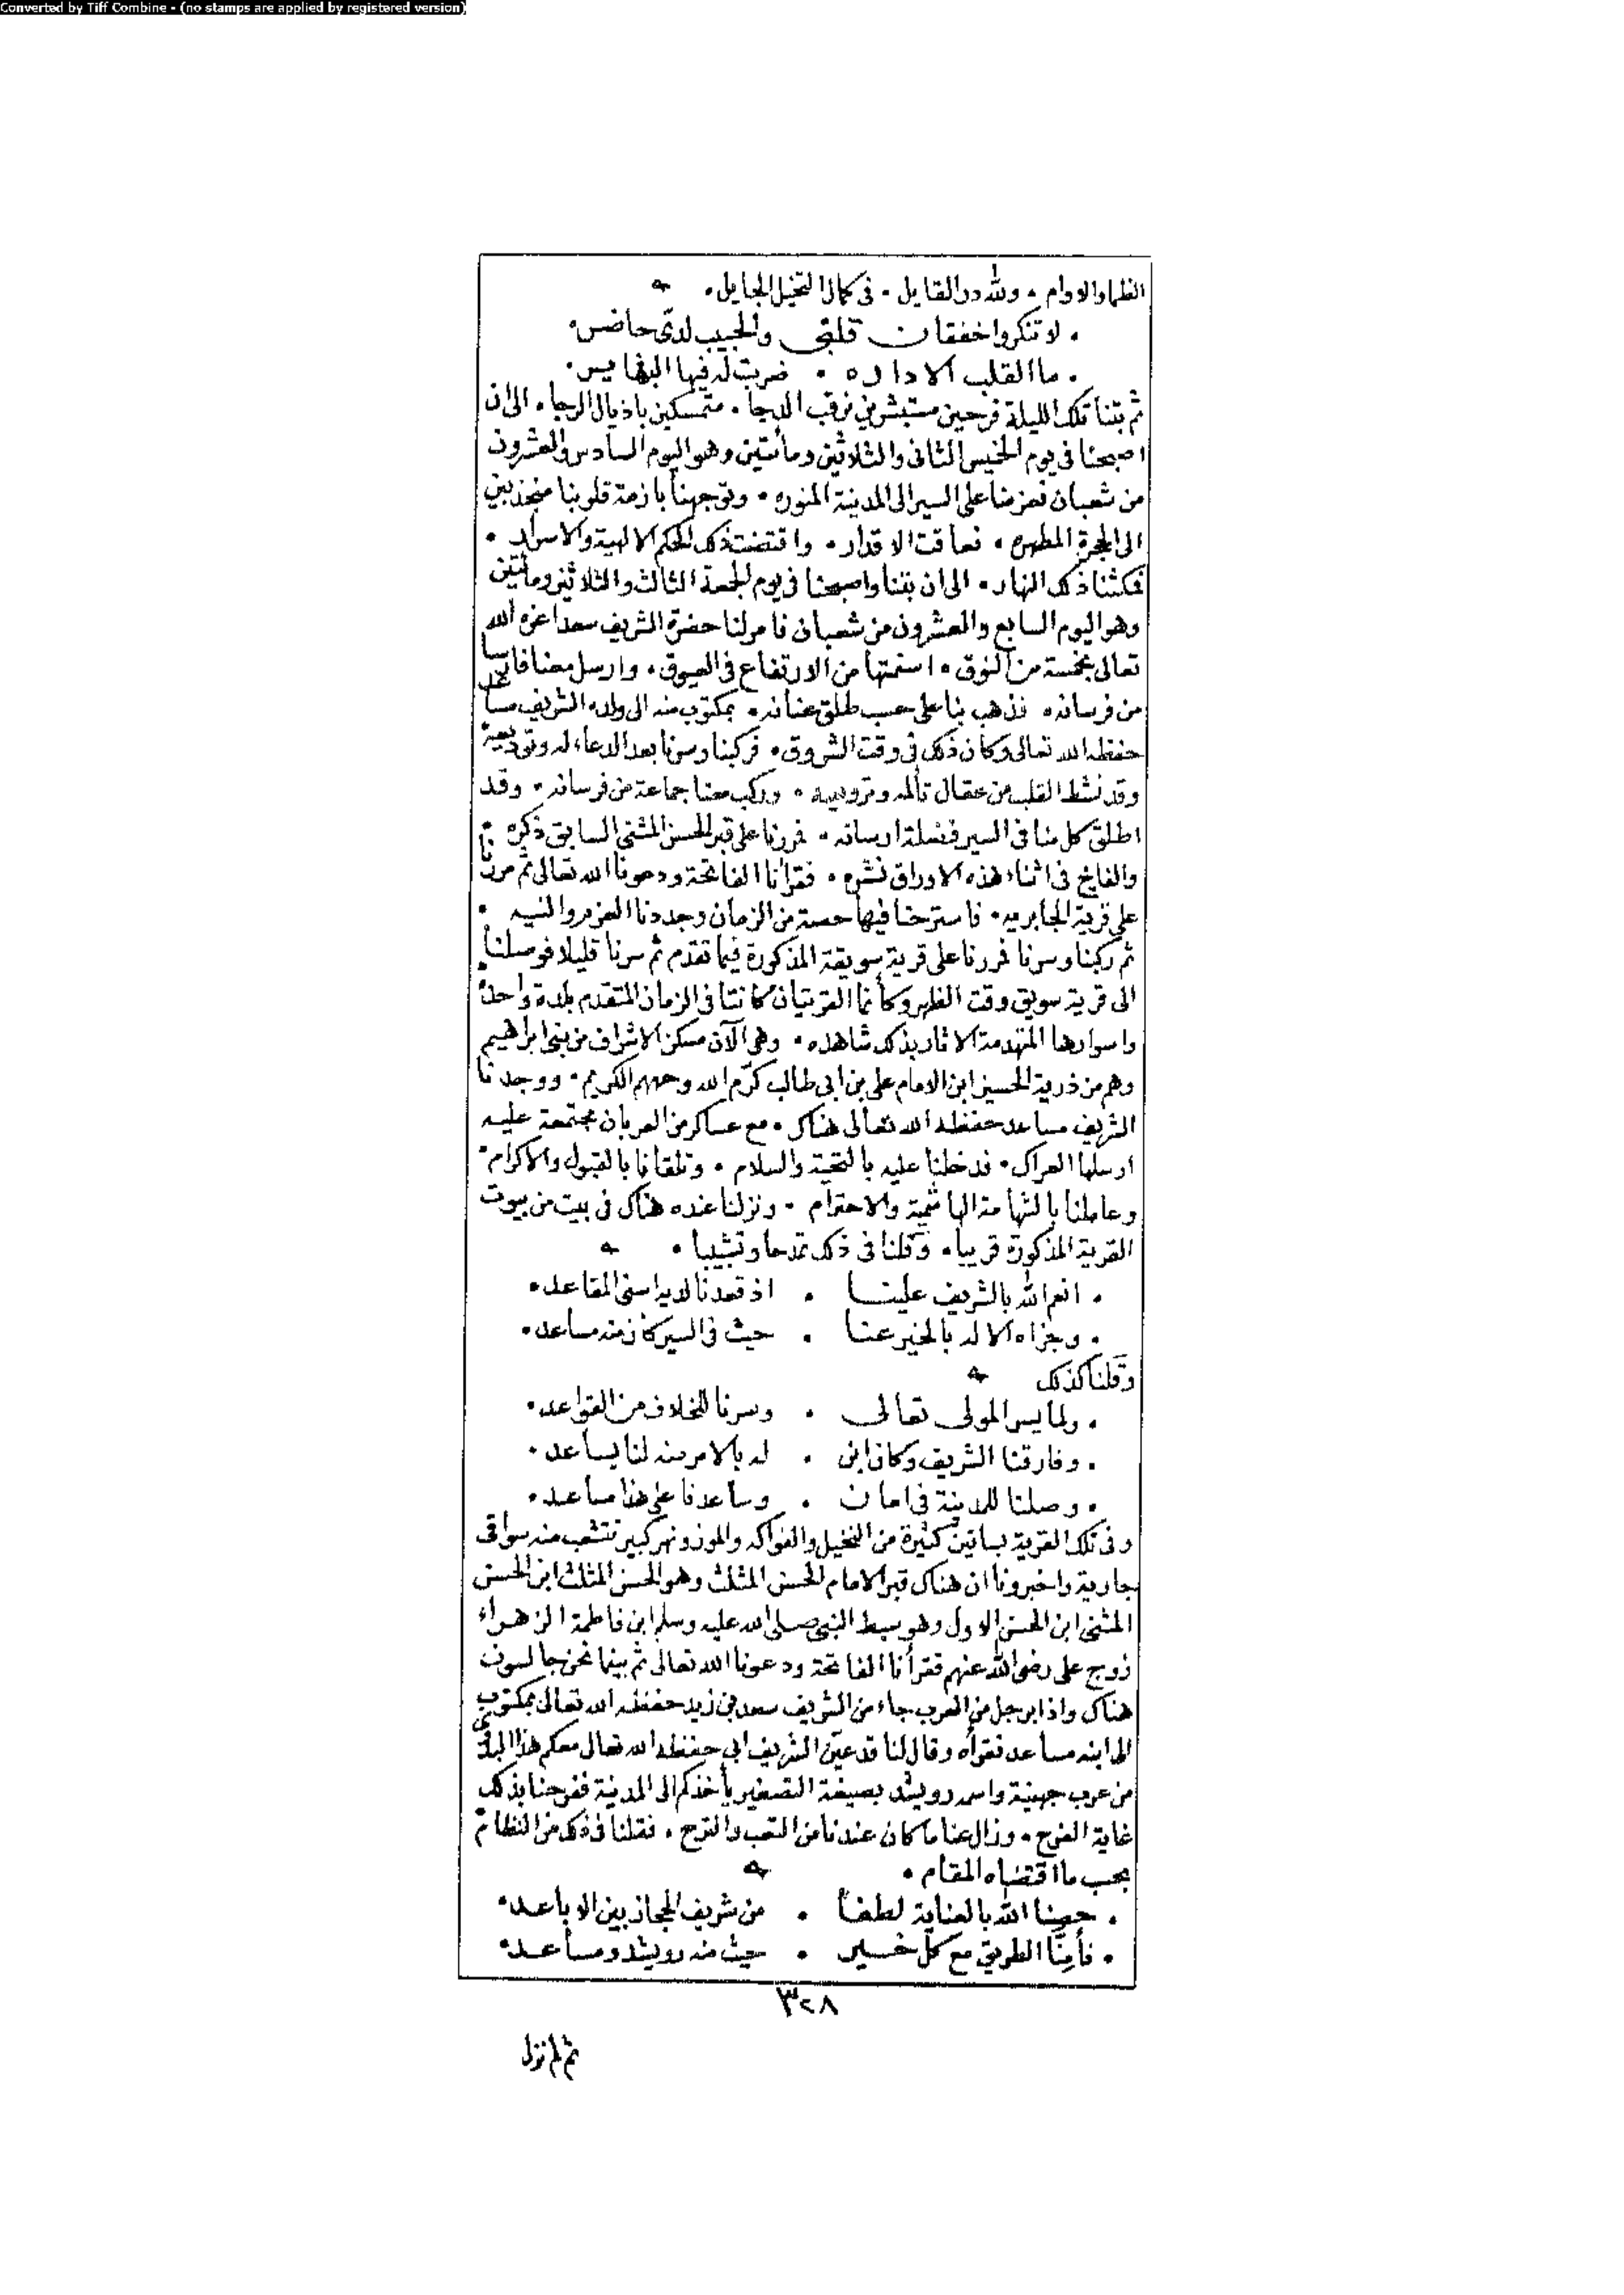 Converted by Tiff Combine - (no stamps are applied by registered version)
الظما والاوام • ولله در القايل • في كمال التخيل الجايل •
• لا تنكروا خفقان قلبي والحبيب لدي حاضر •
• ما القلب الا داره • ضربت له فيها البشاير •
ثم بتنا تلك الليلة فرحين مستبشرين نرقب الدجا • متمسكين باذيال الرجا • الى ان
اصبحنا في يوم الخميس الثاني والثلاثين ومائتين وهو اليوم السادس والعشرون
من شعبان فعزمنا على السير الى المدينة المنوره • وتوجهنا بازمة قلوبنا منجذبين
الى الحجرة المطهره • فعاقت الاقدار • واقتضت ذلك الحكم الالهية والاسرار •
فمكثنا ذلك النهار • الى ان بتنا واصبحنا في يوم الجمعة الثالث والثلاثين ومائتين
وهو اليوم السابع والعشرون من شعبان فامر لنا حضرة الشريف سعد اعزه الله
تعالى بخمسة من النوق • اسنمتها من الارتفاع في العيوق • وارسل معنا فارسا
من فرسانه • فذهب بنا على حسب طلق عنانه • بمكتوب منه الى ولده الشريف مساعد
حفظه الله تعالى وكان ذلك في وقت الشروق • فركبنا وسرنا بعد الدعاء له وتوديعه
وقد نشط القلب من عقال تألمه وترويعه • وركب معنا جماعة من فرسانه • وقد
اطلق كل منا في السير فضلة ارسانه • فمررنا على قبر الحسن المثنى السابق ذكره
والفايح في اثناء هذه الاوراق نشره • فقرأنا الفاتحة ودعونا الله تعالى ثم مررنا
على قرية الجابريه • فاسترحنا فيها حصة من الزمان وجددنا العزم والنيه •
ثم ركبنا وسرنا فمررنا على قرية سويقة المذكورة فيما تقدم ثم سرنا قليلا فوصلنا
الى قرية سويق وقت الظهر وكأنما القريتان كانتا في الزمان المتقدم بلدة واحدة
واسوارها المتهدمة الاثار بذلك شاهده • وهي الآن مسكن الاشراف من بني ابراهيم
وهم من ذرية الحسين ابن الامام علي بن ابي طالب كرّم الله وجههم الكريم • ووجدنا
الشريف مساعد حفظه الله تعالى هناك • مع عساكر من العربان مجتمعة عليه
ارسلها العراك • فدخلنا عليه بالتحية والسلام • وتلقانا بالقبول والاكرام •
وعاملنا بالشهامة الهاشمية والاحترام • ونزلنا عنده هناك في بيت من بيوت
القرية المذكورة قريبا • وقلنا في ذلك تمدحا وتشبيبا •
• انعم الله بالشريف علينا • اذ قعدنا لديه اسنى المقاعد •
• وجزاه الاله بالخير عنا • حيث في السير كان منه مساعد •
وقلنا كذلك
• ولما يسر المولى تعالى • وسرنا للخلاف من القواعد •
• وفارقنا الشريف وكان ابن • له بالامر منه لنا يساعد •
• وصلنا للمدينة في امان • وساعدنا على هذا مساعد •
وفي تلك القرية بساتين كثيرة من النخيل والفواكه والموز ونهر كبير تتشعب منه سواقي
جارية واخبرونا ان هناك قبر الامام الحسن المثلث وهو الحسن المثلث ابن الحسن
المثنى ابن الحسن الاول وهو سبط النبي صلى الله عليه وسلم ابن فاطمة الزهراء
زوج علي رضي الله عنهم فقرأنا الفاتحة ودعونا الله تعالى ثم بينما نحن جالسون
هناك واذا برجل من العرب جاء من الشريف سعد بن زيد حفظه الله تعالى بمكتوب
الى ابنه مساعد فقرأه وقال لنا قد عين الشريف ابي حفظه الله تعالى معكم هذا البدوي
من عرب جهينة واسمه رويشد بصيغة التصغير يأخذكم الى المدينة ففرحنا بذلك
غاية الفرح • وزال عنا ما كان عندنا من التعب والترح • فقلنا في ذلك من النظام
بحسب ما اقتضاه المقام •
• حصنا الله بالعناية لطفا • من شريف الحجاز بين الاباعد •
• فأمنّا الطريق مع كل خير • حيث منه رويشد ومساعد •
٣٢٨
ثم لم نزل